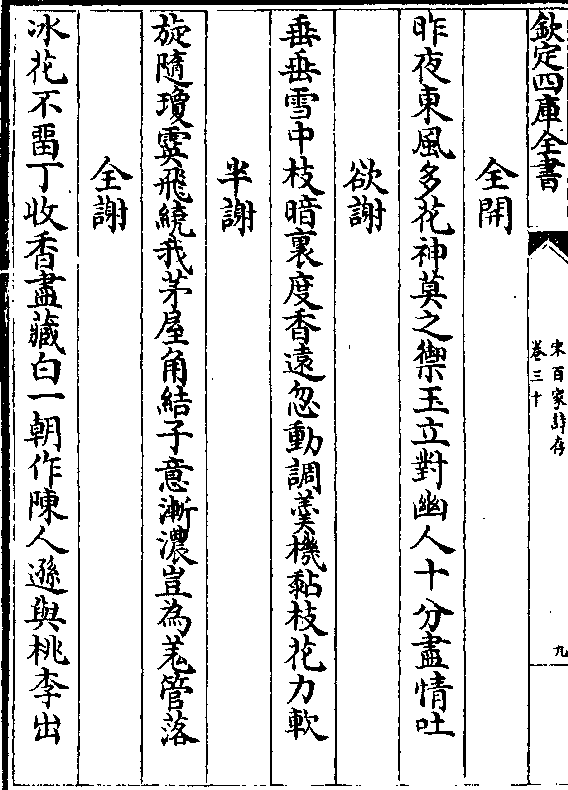 欽定四庫全書
宋百家詩存
卷三十
九
全開
昨夜東風多花神莫之禦玉立對幽人十分盡情吐
欲謝
垂垂雪中枝暗裏度香遠忽動調羹機黏枝花力軟
半謝
旋隨瓊霙飛繞我茅屋角結子意漸濃豈為羌管落
全謝
冰花不畱丁收香盡藏白一朝作陳人遜與桃李出